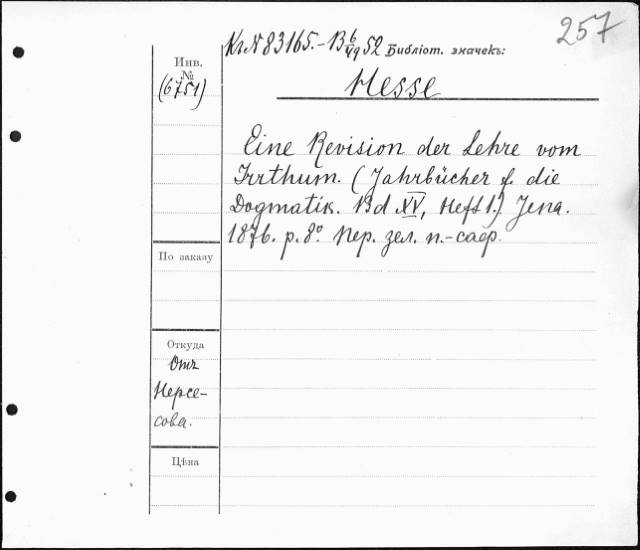 257
Кг№83165.-В 6/49 52 Библіот. значекъ:
Инв.
№
(6751)
Hesse
Eine Revision der Lehre vom
Irrthum. (Jahrbücher f. die
Dogmatik. Bd XV, Heft 1.) Jena.
1876. p. 8°. Пер. зел. п.-саф.
По заказу
Откуда
Отъ
Нерсе-
сова.
Цѣна